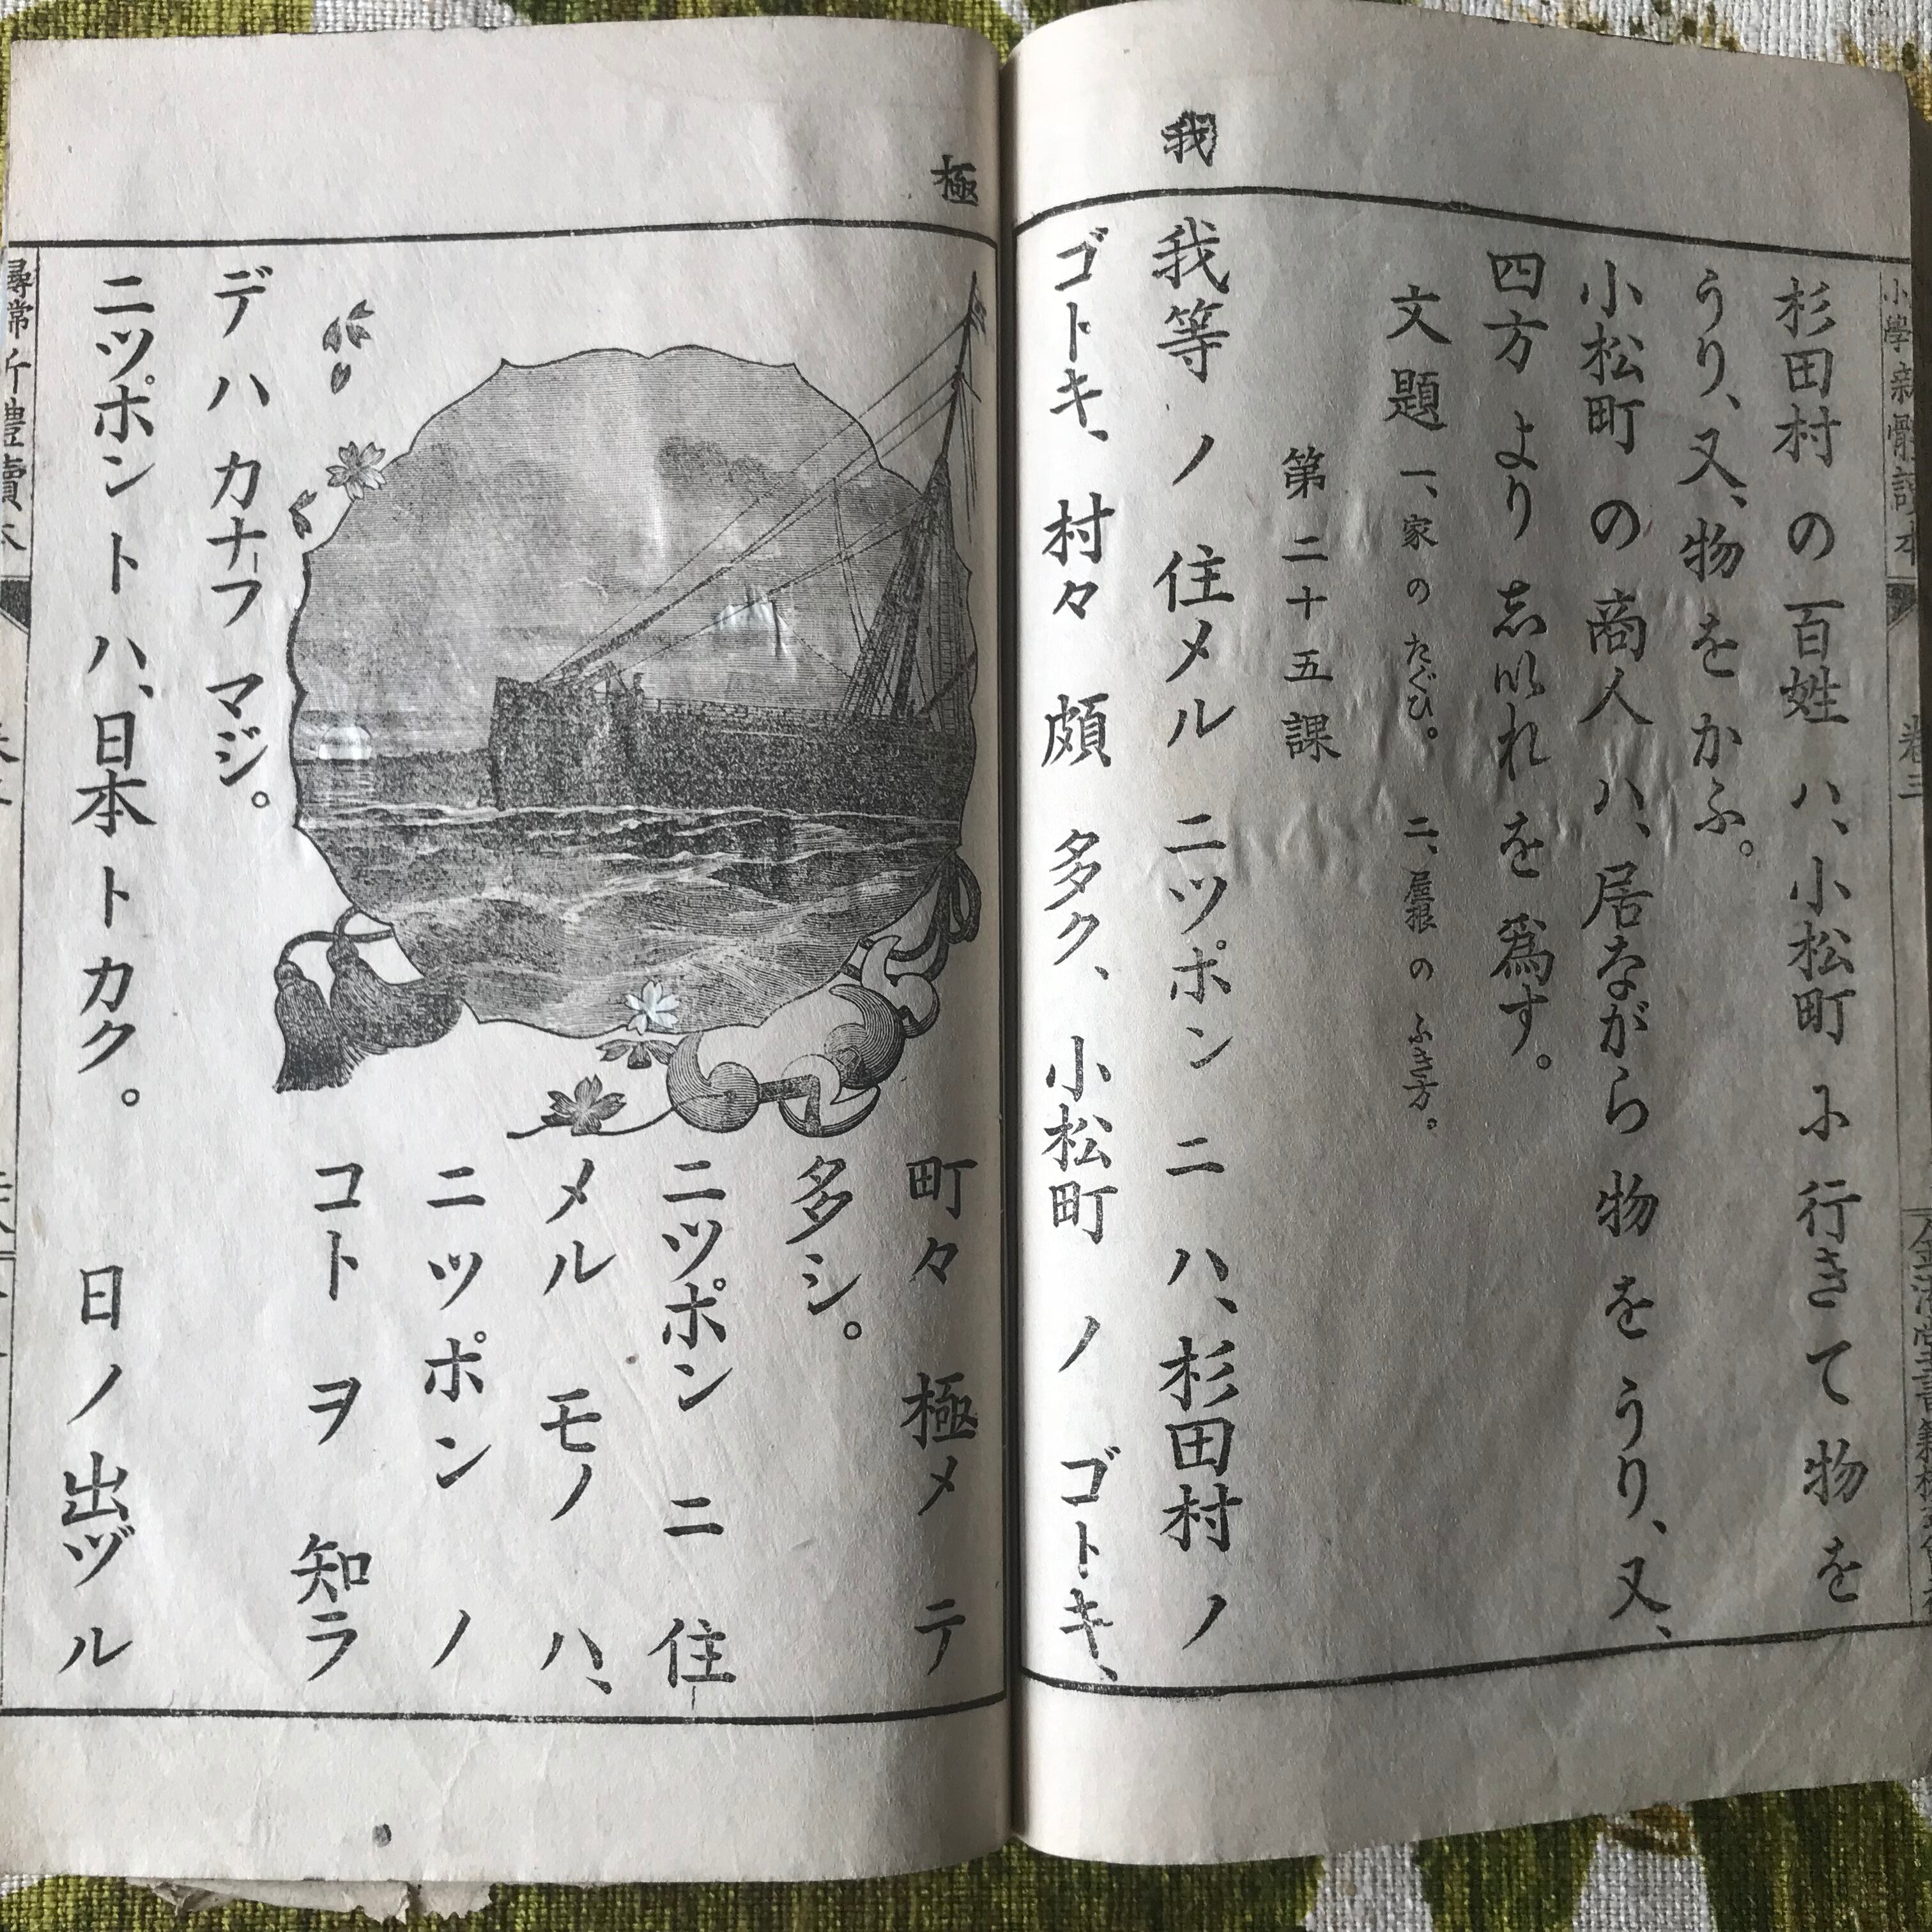 小學新體讀本
卷三
我
杉田村の百姓ハ、小松町に行きて物を
うり、又、物をかふ。
小松町の商人ハ、居ながら物をうり、又、
四方より志いれを爲す。
文題 一、家のたぐひ。 二、屋根のふき方。
第二十五課
我等ノ住メルニッポンニハ、杉田村ノ
ゴトキ、村々頗多ク、小松町ノゴトキ、
極
町々極メテ
多シ。
ニッポンニ住
メルモノハ、
ニッポンノ
コトヲ知ラ
デハカナフマジ。
ニッポントハ、日本トカク。 日ノ出ヅル